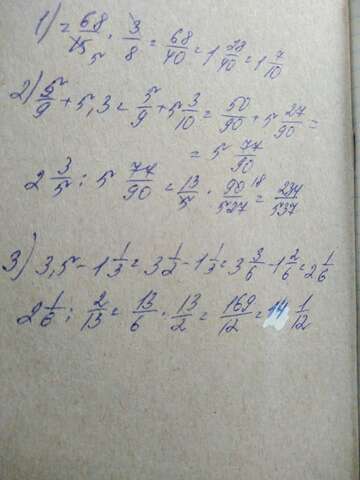 1) = 68/15 · 3/8 = 68/40 = 1 28/40 = 1 7/10
5
2) 5/9 + 5,3 = 5/9 + 5 3/10 = 50/90 + 5 27/90 =
= 5 77/90
2 3/5 : 5 77/90 = 13/5 · 90/527 18 = 234/537
3) 3,5 - 1 1/3 = 3 1/2 - 1 1/3 = 3 3/6 - 1 2/6 = 2 1/6
2 1/6 : 2/13 = 13/6 · 13/2 = 169/12 = 14 1/12